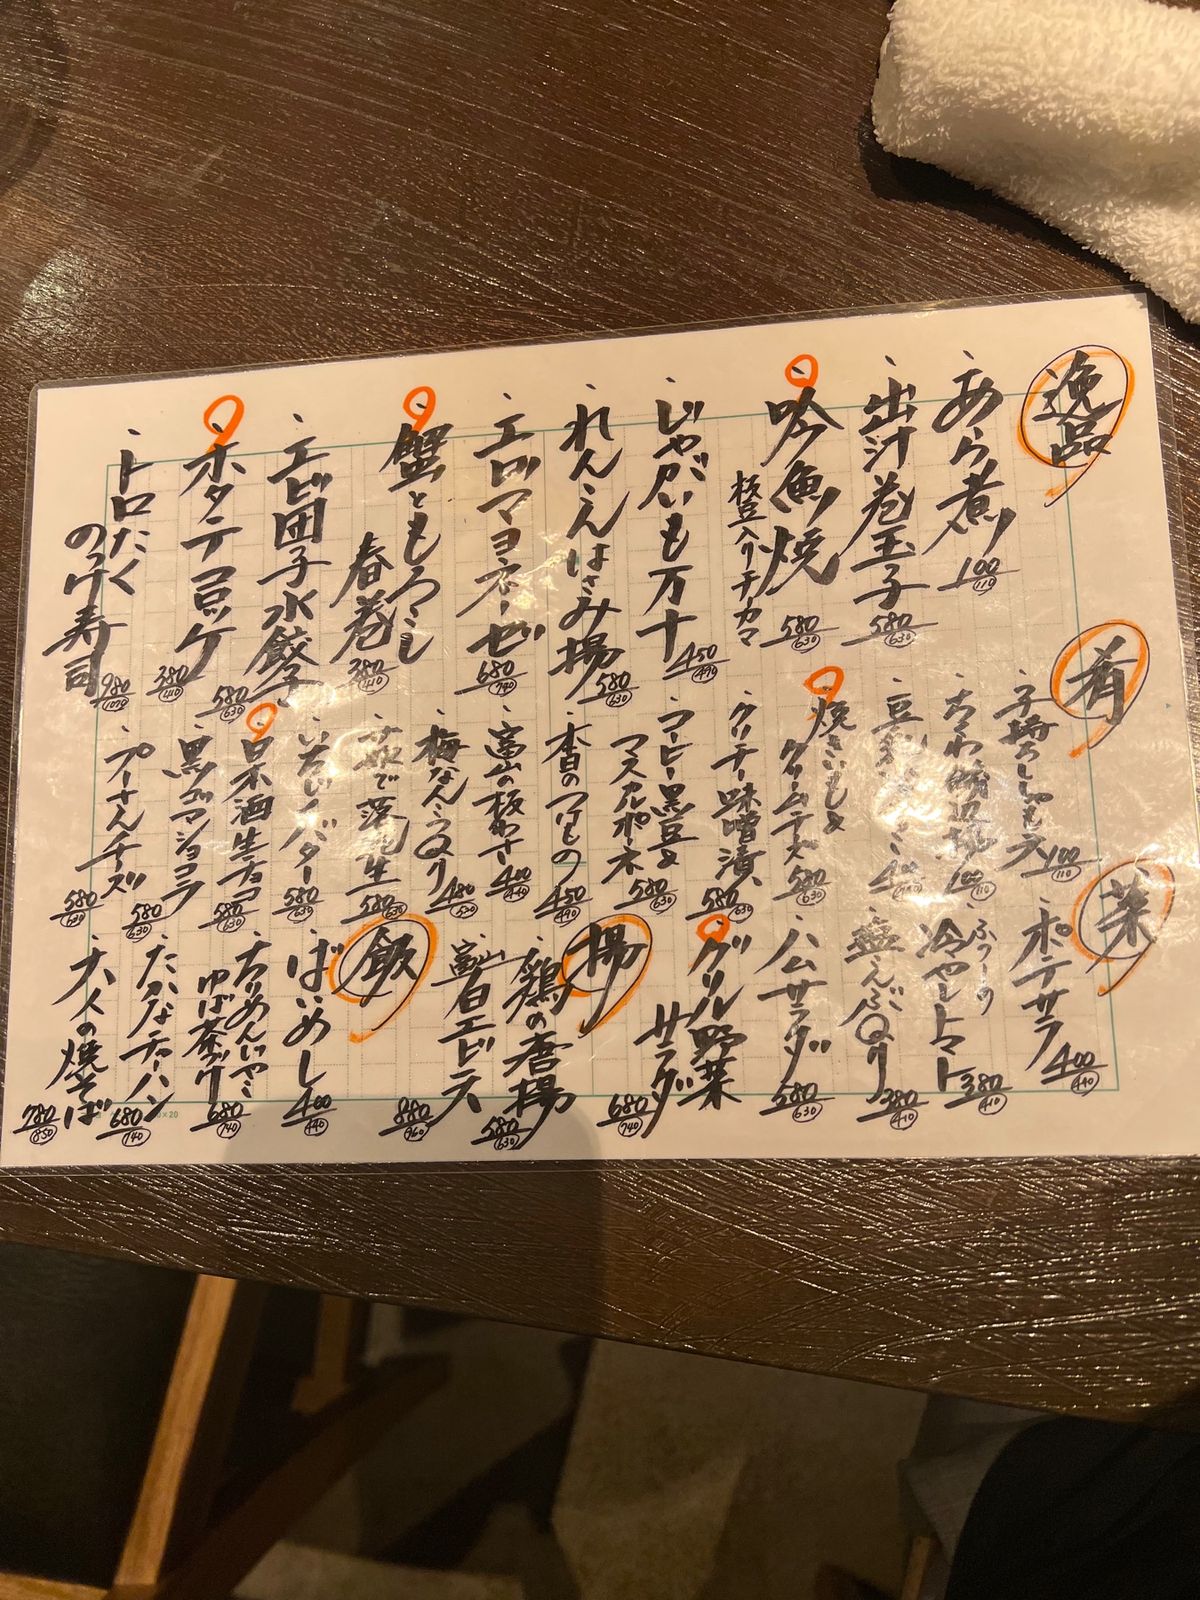 逸品
・あら煮 100 110
・出汁巻玉子 580 630
・吟魚焼 580 630
枝豆入りチーカマ
・じゃがいも万十 450 490
・れんこんはさみ揚 580 630
・エビマヨネーゼ 680 740
・蟹ともろこし
春巻 380 410
・エビ団子水餃子 580 630
・ホタテコロッケ 380 410
・トロたく
のっけ寿司 980 1070
肴
・子持ちししゃも天 100 110
・ちくわ磯辺揚 100 110
・焼きいもと
クリームチーズ 580 630
・クリチー味噌漬 580 630
・コーヒー黒豆と
マスカルポーネ 580 630
・本日のつけもの 450 490
・富山の板わさ 400 440
・梅なんこつQり 480 520
・ゆで落花生 580 630
・いちじくバター 580 630
・日本酒生チョコ 580 630
・黒ゴマショコラ 580 630
・プーさんチーズ 580 630
菜
・ポテサラ 400 440
・ふつーの
冷やしトマト 380 410
・塩こんぶQり 380 410
・ハムサラダ 580 630
・グリル野菜
サラダ 680 740
揚
・鶏の唐揚 580 630
・富山白エビ天 880 960
飯
・ばいめし 400 440
・ちりめんじゃこ
ゆば茶づけ 680 740
・たかなチャーハン 680 740
・大人の焼そば 780 850